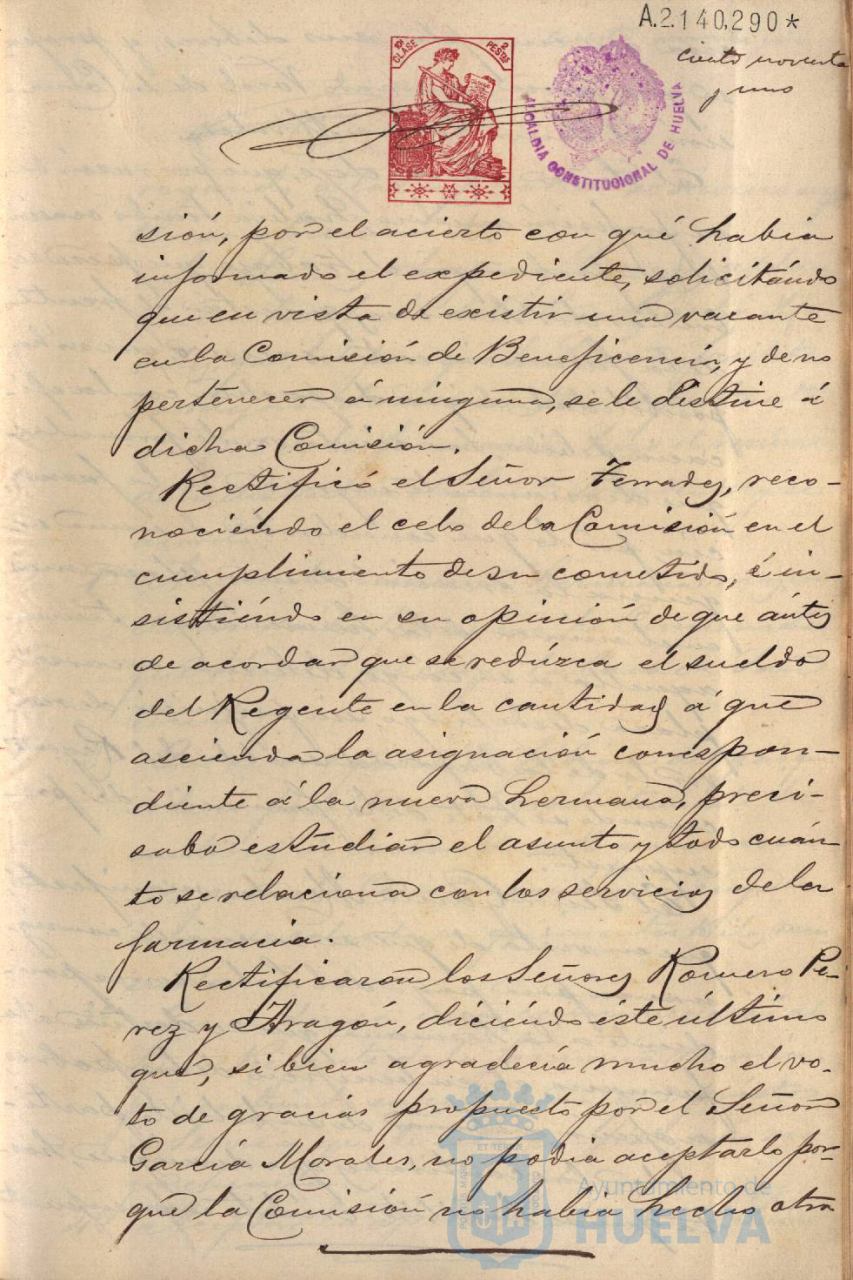 A.2.140,290*
ciento noventa
y uno
10ª CLASE
2 PESTAS
ALCALDIA CONSTITUCIONAL DE HUELVA
sión, por el acierto con qué habia
informado el expediente, solicitándo
que en vista de existir una vacante
en la Comisión de Beneficencia, y de no
pertenecer á ninguna, se le destine á
dicha Comisión.
Rectificó el Señor Terrades, reco-
nociéndo el celo de la Comisión en el
cumplimiento de su cometido, é in-
sistiéndo en su opinión de que ántes
de acordar que se redúzca el sueldo
del Regente en la cantidad á que
ascienda la asignación correspon-
diente á la nueva hermana, preci-
saba estudiar el asunto y todo cuán-
to se relaciona con los servicios de la
farmacia.
Rectificaron los Señores Romero Pe-
rez y Aragón, diciéndo éste último
que, si bien agradecía mucho el vo-
to de gracias propuesto por el Señor
García Morales, no podia aceptarlo por-
que la Comisión no habia hecho otra
Ayuntamiento de
HUELVA